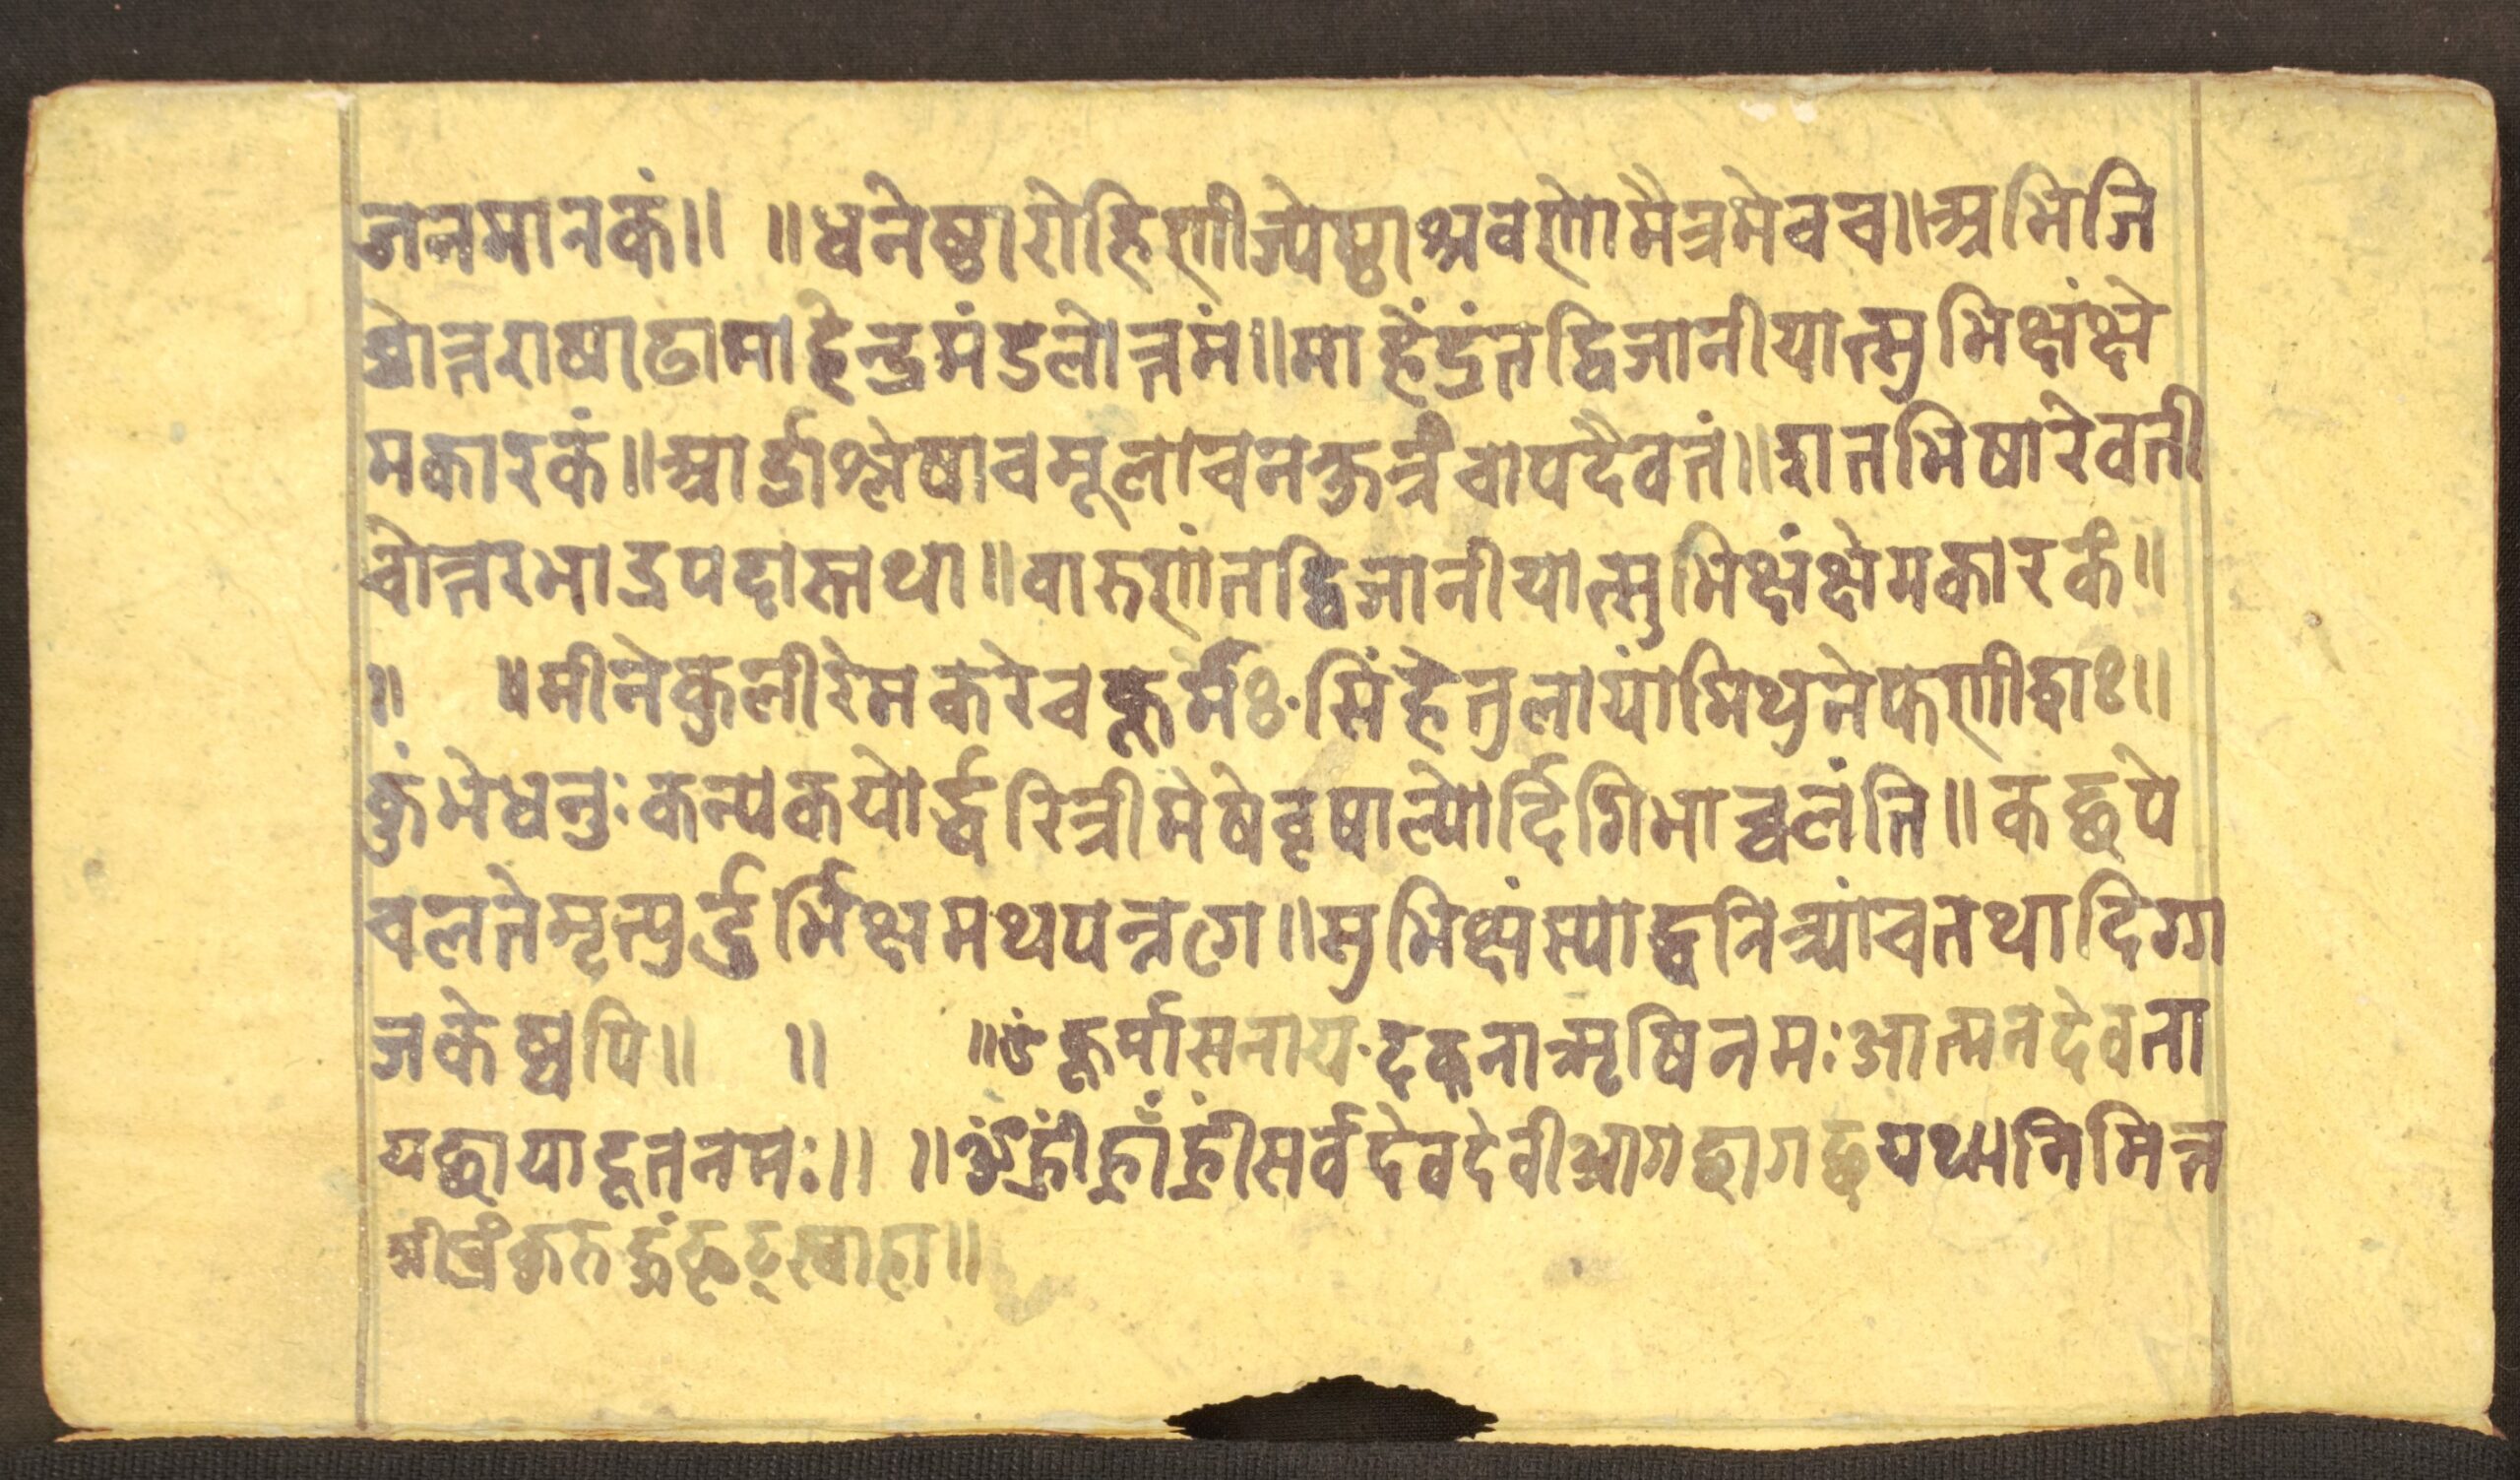 जनमानकं॥ ॥धनेष्ठारोहिणीज्येष्ठाश्रवणोमैत्रमेवच॥अभिजि
चोत्तराषाढामाहेन्द्रमंडलोत्तमं॥माहेंद्रंतद्विजानीयात्सुभिक्षंक्षे
मकारकं॥आर्द्राश्लेषाचमूलाचनक्षत्रंचापदैवतं॥शतभिषारेवती
चोत्तरभाद्रपदास्तथा॥वारुणंतद्विजानीयात्सुभिक्षंक्षेमकारकं॥
॥ ॥मीनेकुलीरेमकरेचकूर्मः॰सिंहेतुलायांमिथुनेफणीशः॥
कुंभेधनुःकन्यकयोर्द्धरित्रीमेषेवृषाल्योर्दिगिभाश्चलंति॥कछपे
चलतेमृत्युर्दुर्भिक्षमथपन्नगे॥सुभिक्षंस्याद्धरित्र्यांचतथादिग्ग
जकेष्वपि॥ ॥ ॥ॐकूर्मासनाय॰ नमःआत्मनदेवता
यछायादूतनमः॥ ॥ॐह्रींह्रांह्रींसर्वदेवदेवीआगछागछयथानिमित्त
स्वाहा॥